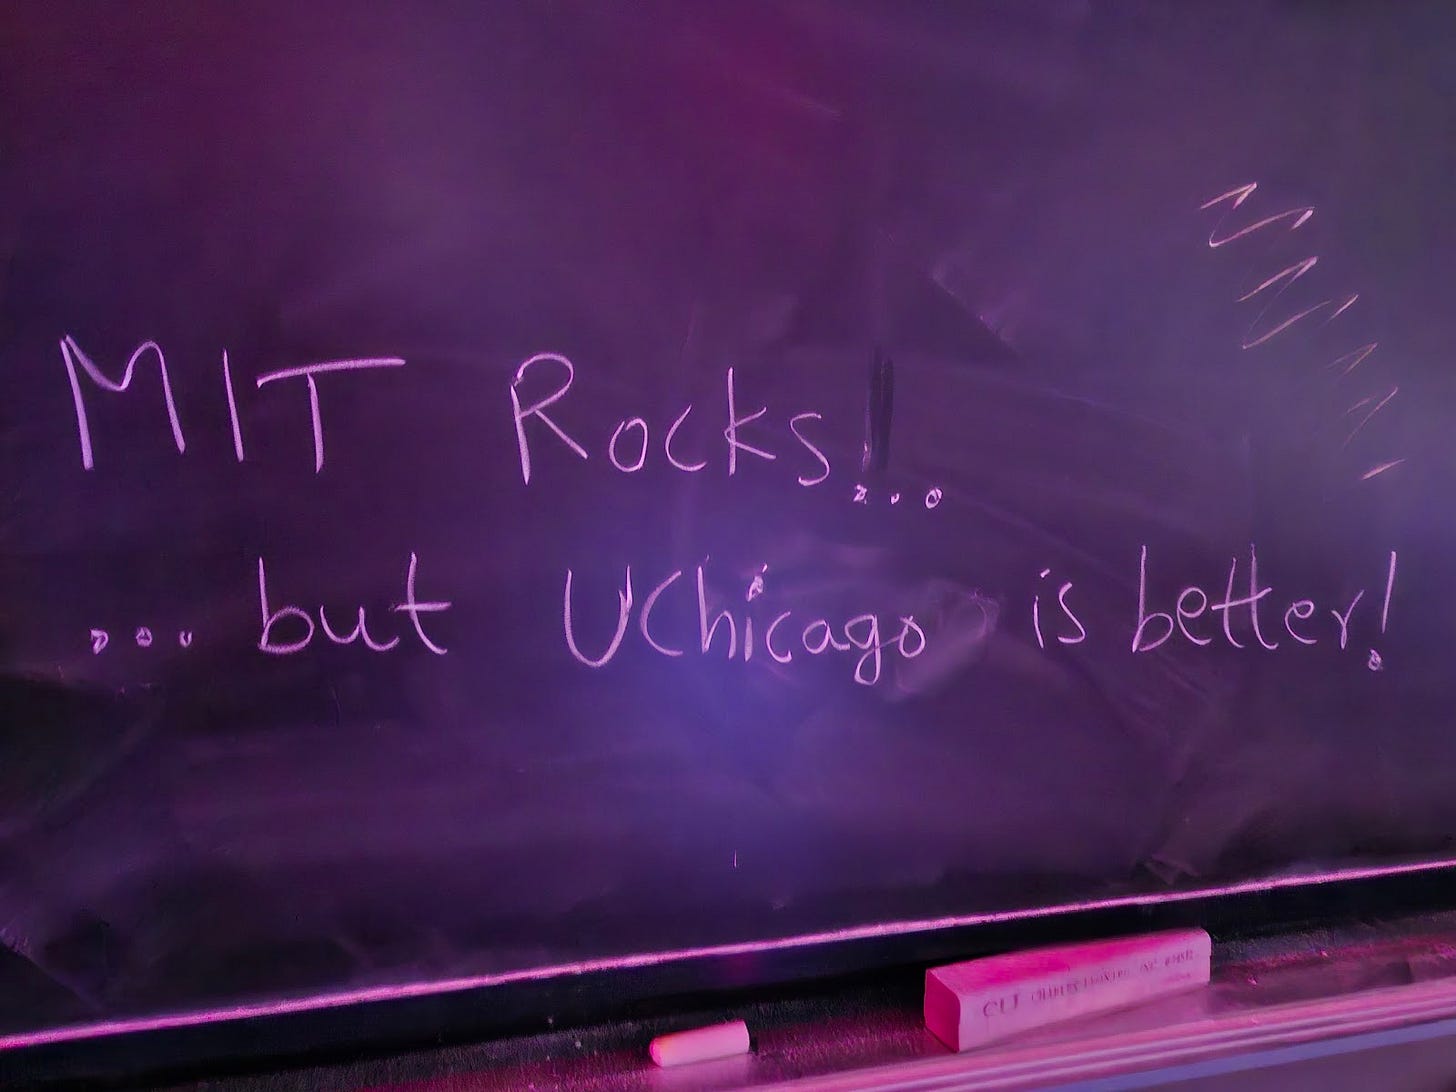 MIT Rocks!...
... but UChicago is better!
CLI